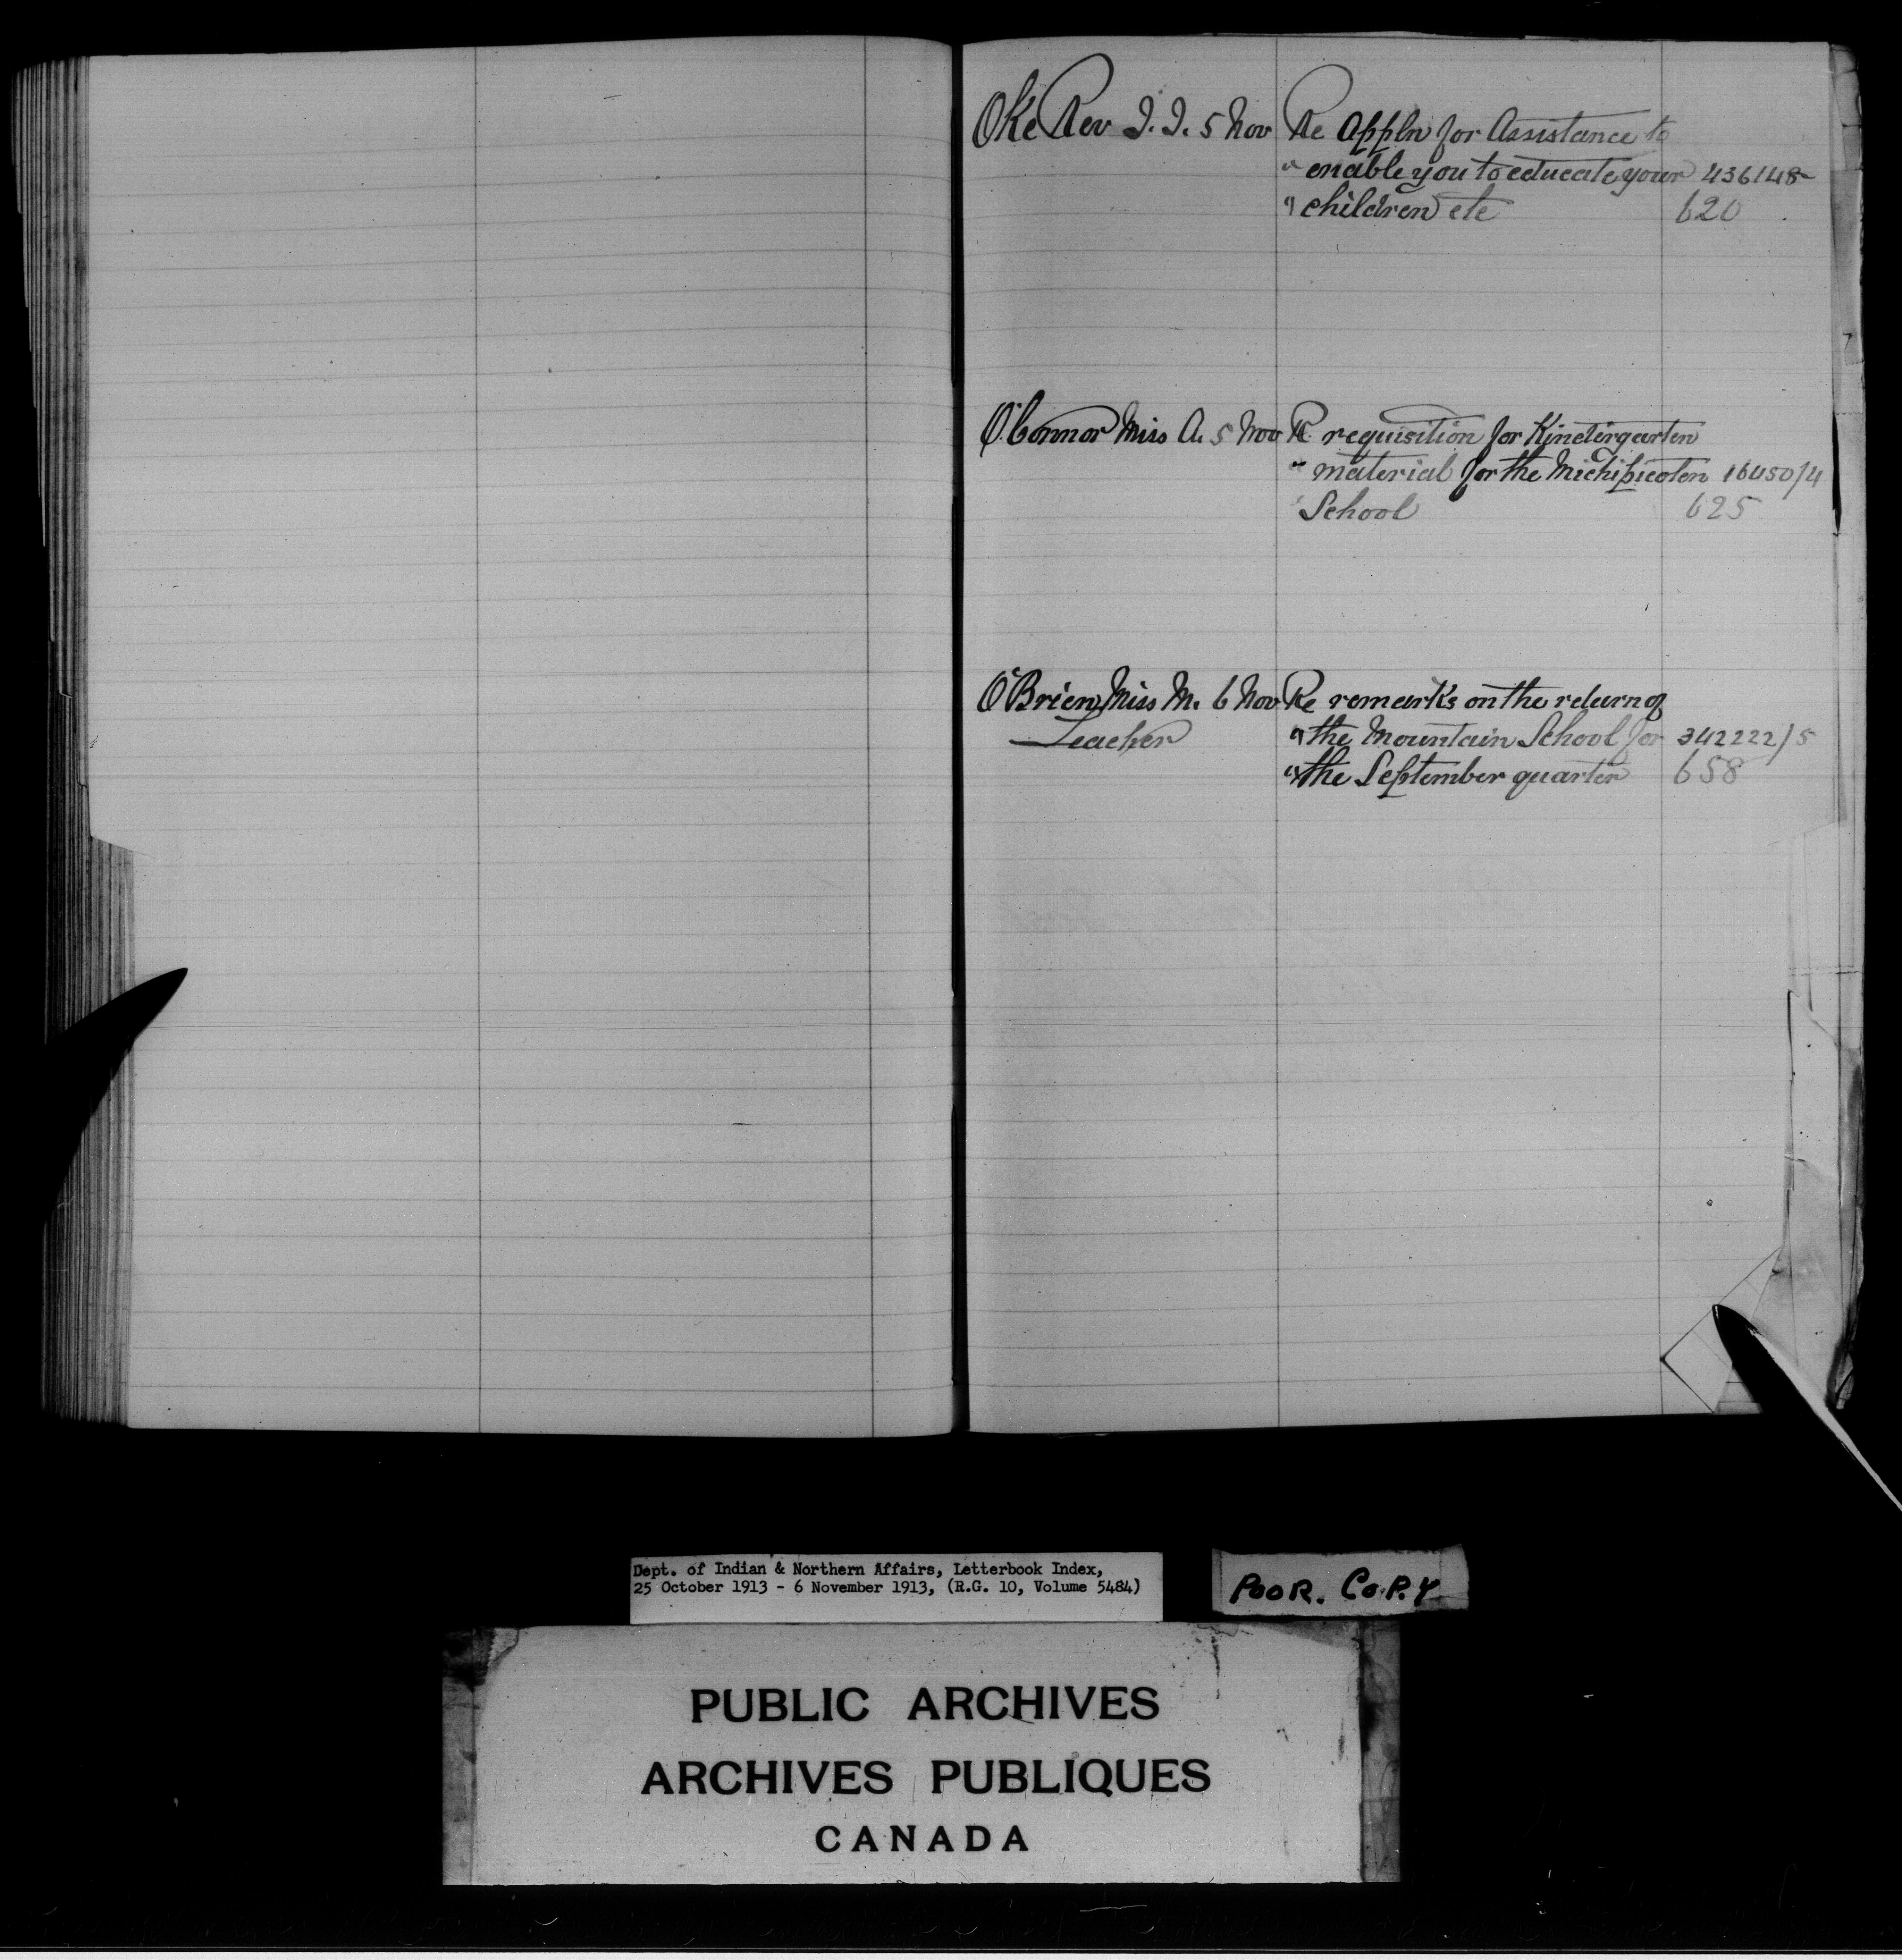 Oke Rev I. I. 5 Nov Re Appln for Assistance to
" enable you to educate your 436148
" children etc 620
O'Connor Miss A. 5 Nov Re requisition for Kindergarten
" material for the Michipicoten 16450/4
School 625
O'Brien Miss M. 6 Nov Re remarks on the return of
Teacher " the Mountain School for 342222/5
" the September quarter 658
Dept. of Indian & Northern Affairs, Letterbook Index,
25 October 1913 - 6 November 1913, (R.G. 10, Volume 5484)
POOR. COPY
PUBLIC ARCHIVES
ARCHIVES PUBLIQUES
CANADA